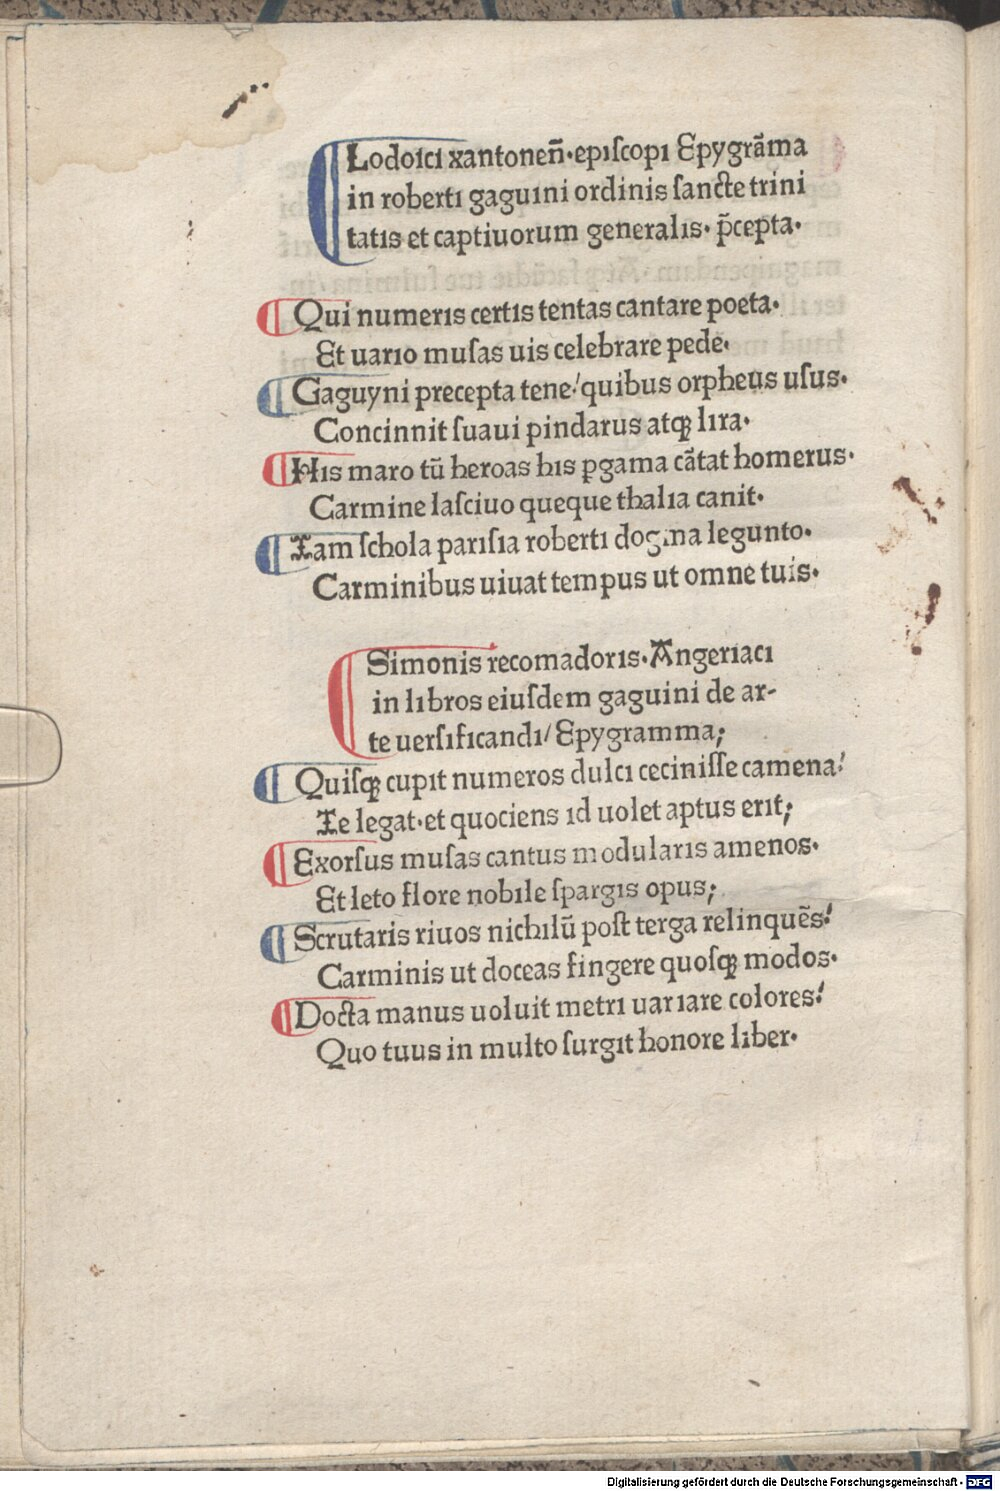 Lodoici xantoneñ·epiſcopi Epygrãma
in roberti gaguini ordinis ſancte trini
tatis et captiuorum generalis· p̄cepta·
Qui numeris certis tentas cantare poeta·
Et uario muſas uis celebrare pede·
Gaguyni precepta tene/ quibus orpheus uſus·
Concinnit ſuaui pindarus atqꝫ lira·
His maro tũ heroas his ꝑgama cãtat homerus·
Carmine laſciuo queque thalia canit·
Iam ſchola pariſia roberti dogma legunto·
Carminibus uiuat tempus ut omne tuis·
Simonis recomadoris·Angeriaci
in libros eiuſdem gaguini de ar-
te uerſificandi/ Epygramma;
Quiſqꝫ cupit numeros dulci ceciniſſe camena/
Te legat·et quociens id uolet aptus erit;
Exorſus muſas cantus modularis amenos·
Et leto flore nobile ſpargis opus;
Scrutaris riuos nichilũ poſt terga relinquẽs/
Carminis ut doceas fingere quoſqꝫ modos·
Docta manus uoluit metri uariare colores/
Quo tuus in multo ſurgit honore liber·
Digitalisierung gefördert durch die Deutsche Forschungsgemeinschaft - DFG